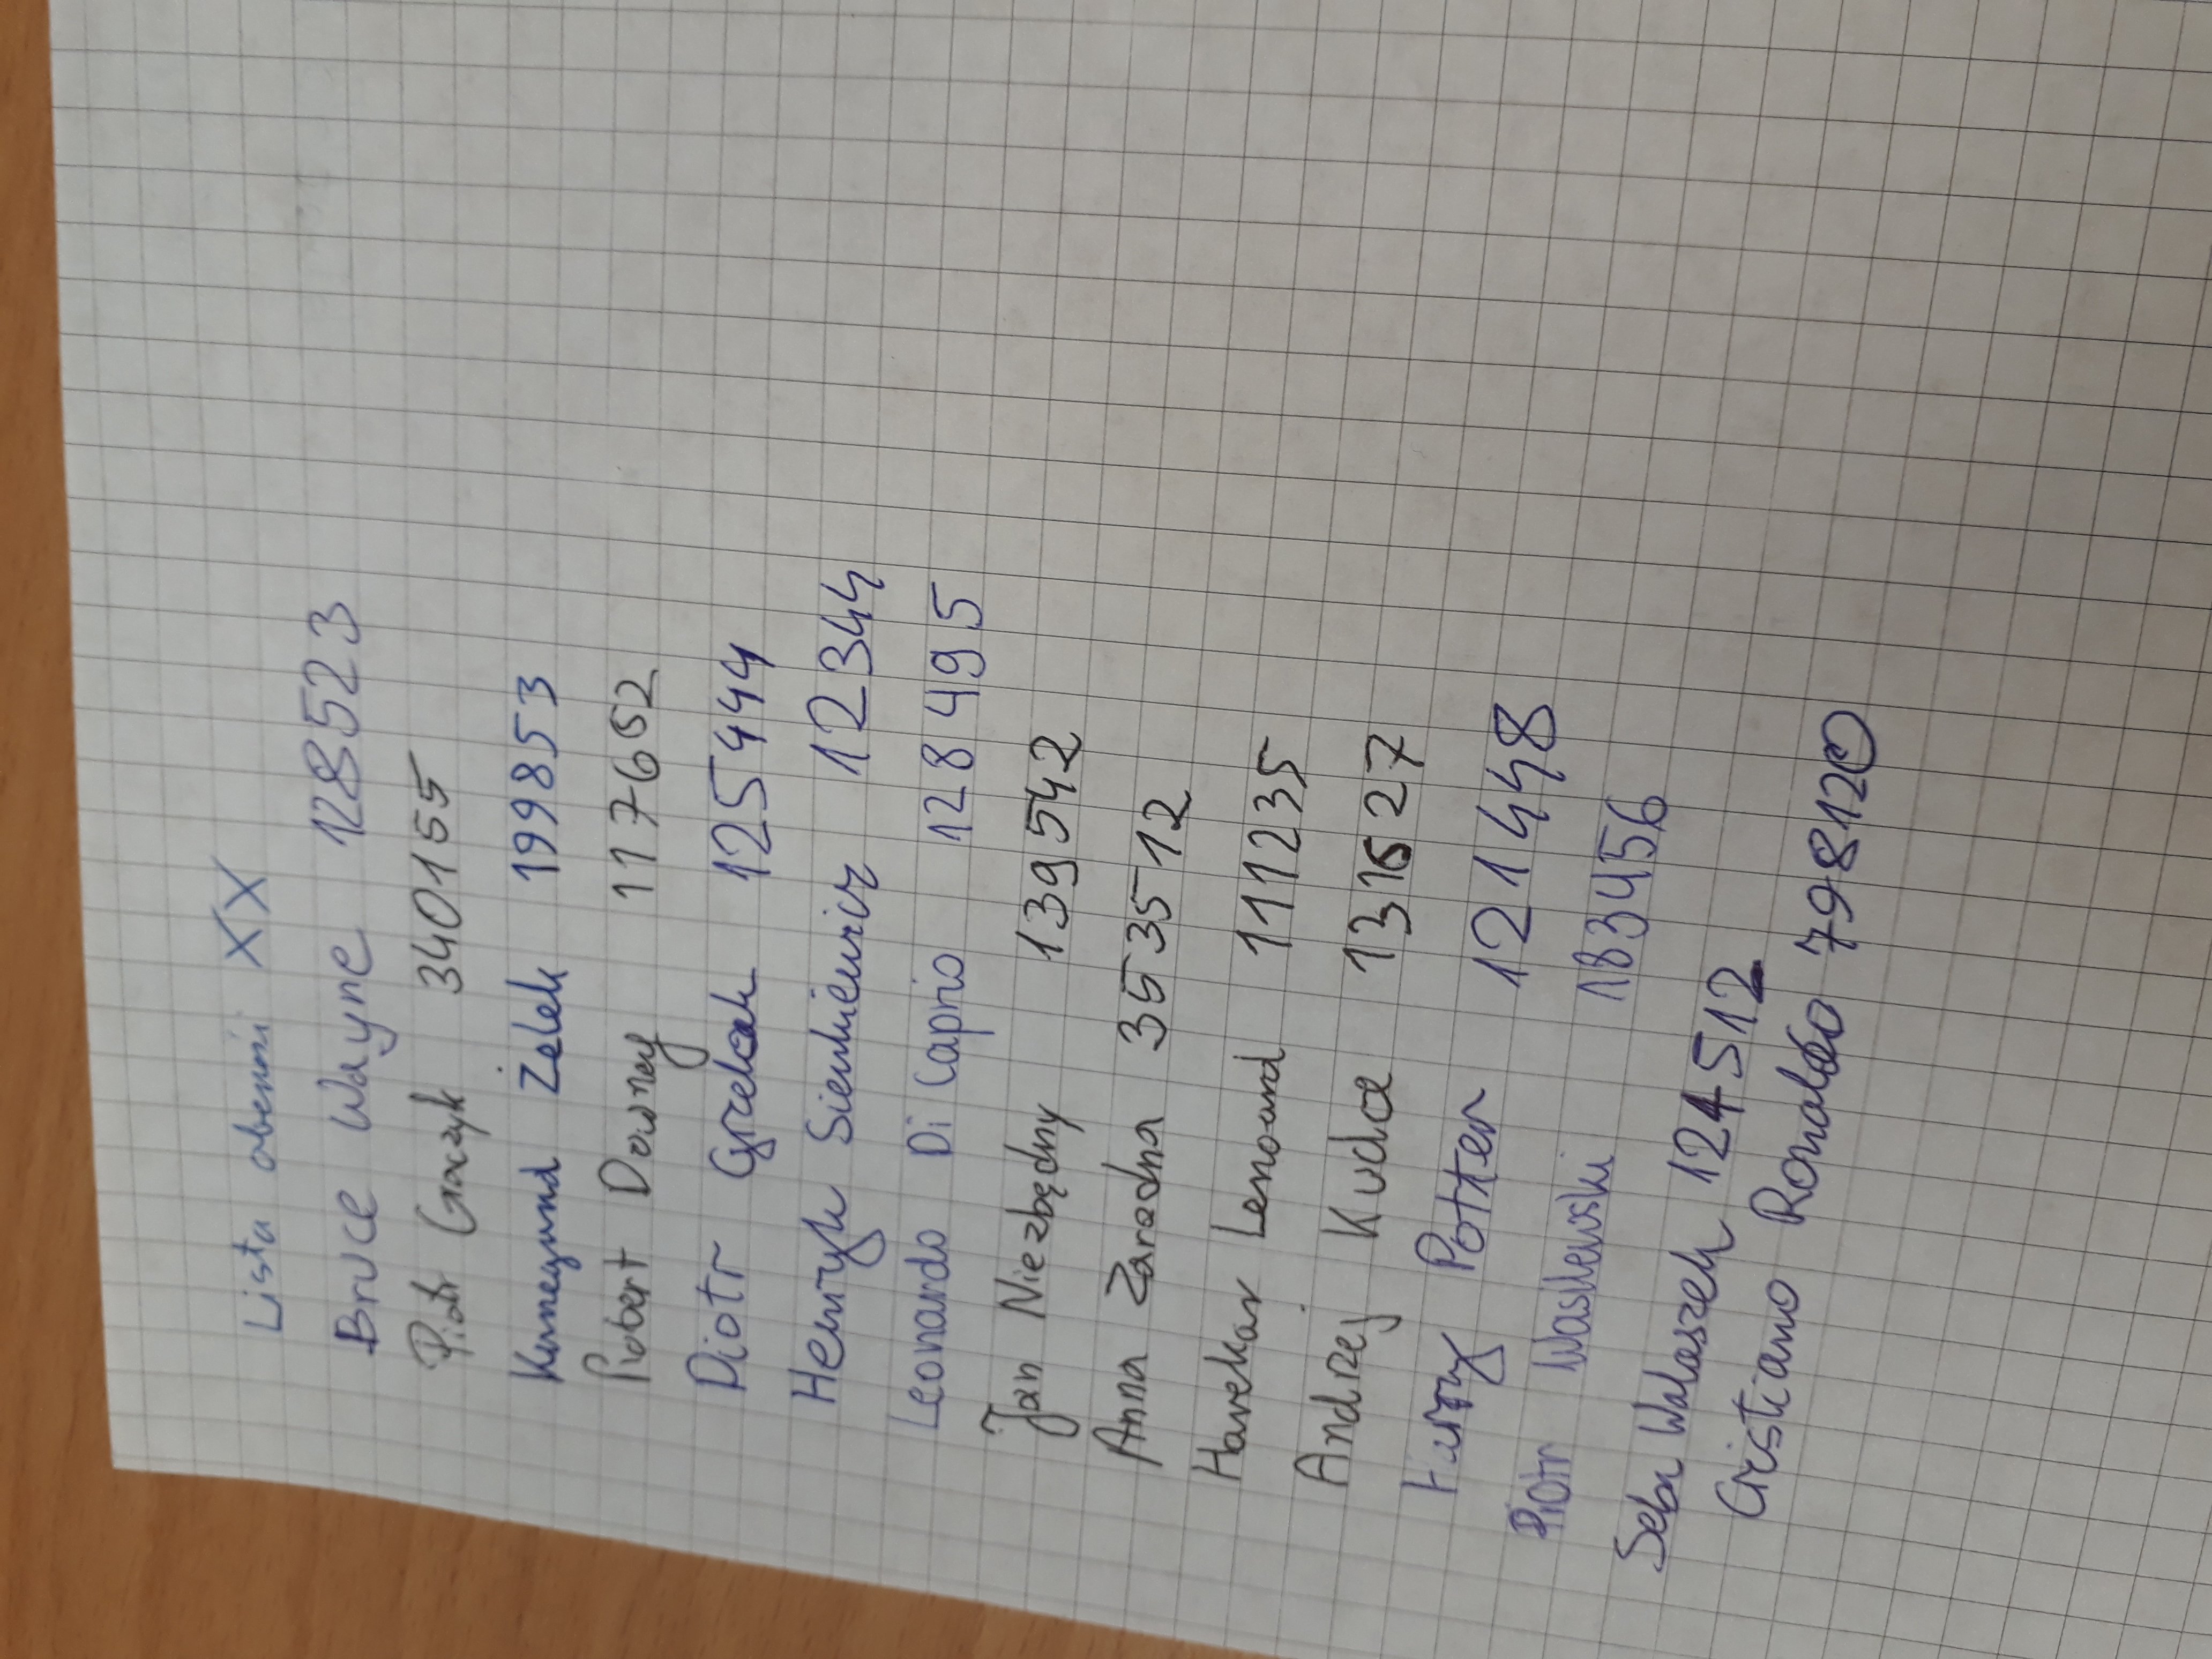 Lista obecności XX
Bruce Wayne 128523
Piotr Graczyk 340155
Kunegund Żelek 199853
Robert Downey 117652
Piotr Grzelak 125444
Henryk Sienkiewicz 12344
Leonardo Di Caprio 128495
Jan Niezbędny 139542
Anna Zaradna 353512
Lenoard 111235
Andrzej 131627
Harry Potter 121448
Piotr Wasilewski 183456
Seba Walaszek 124512
Cristiano Ronaldo 798120